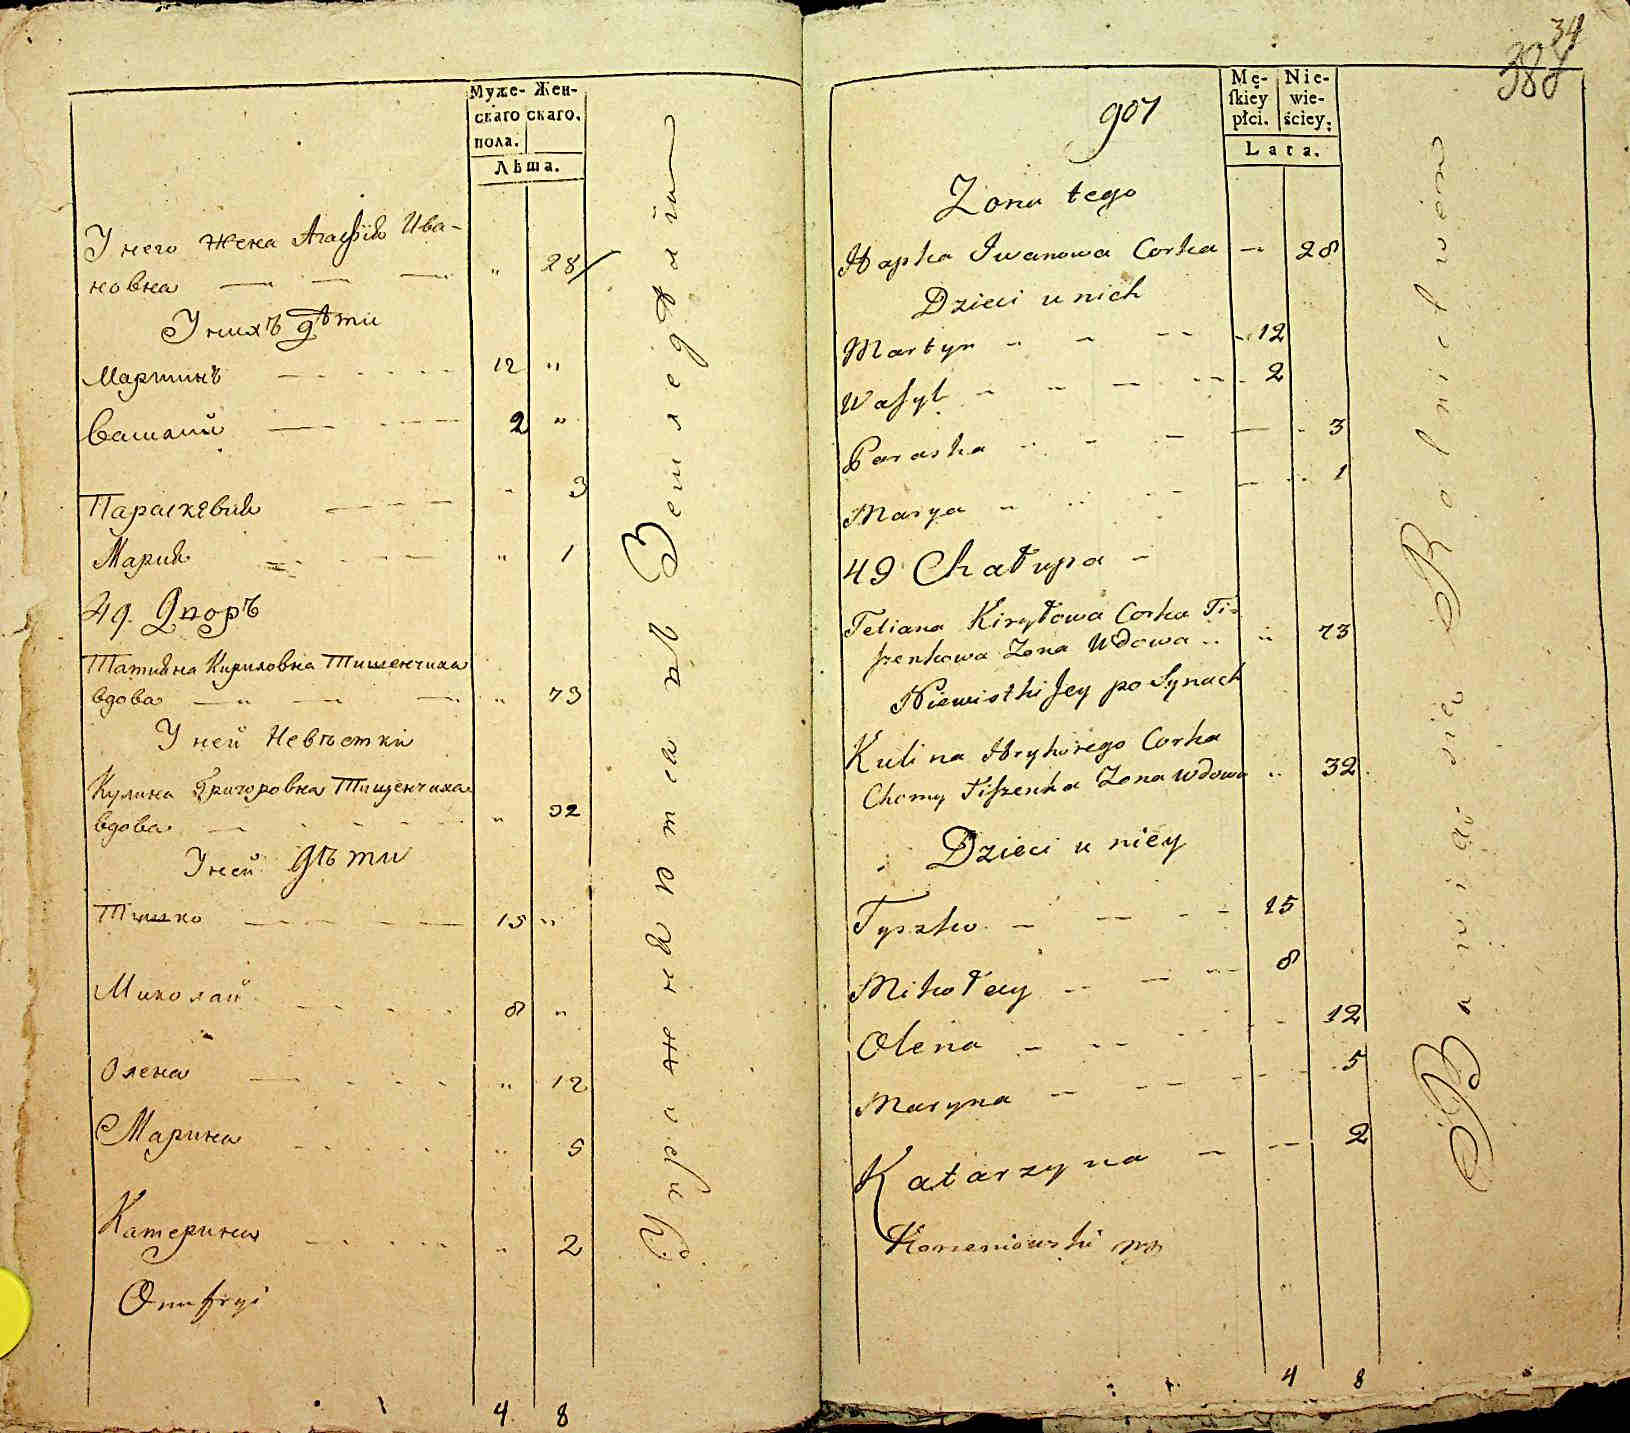 Муже-
скаго
пола.
Жен-
скаго.
Лѣта.
У него жена Агафія Ива-
новна " 28
У нихъ дѣти
Мартинъ 12 "
Василій 2 "
Параскевия " 3
Мария " 1
49. Дворъ
Татияна Кириловна Тишенчиха
вдова " 73
У ней Невѣстки
Кулина Григоровна Тищенчиха
вдова " 32
У ней дѣти
Тишко 15 "
Миколай 8 "
Олена " 12
Марина " 5
Катерина " 2
Onufryi
4 8
Земледѣлія
34
388
907
Mę-
ſkiey
płci.
Nie-
wie-
ściey.
Lata.
Zona tego
Hapka Iwanowa Corka " 28
Dzieci u nich
Martyn 12
Wasyl 2
Paraska 3
Marya 1
49 Chałupa
Tetiana Kiryłowa Corka Ti-
szenkowa Zona Wdowa " 73
Niewistki Jey po Synach
Kulina Hryhorego Corka
Chomy Tiszenka Zona wdowa " 32
Dzieci u niey
Tyszko 15
Mikołay 8
Olena 12
Maryna 5
Katarzyna 2
Korzeniowski
4 8
Bawią się Rolnictwem